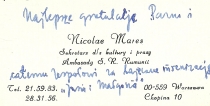 Najlepsze gratulacje Panu i
Nicolae Mareș
Sekretarz d/s kultury i prasy
Ambasady S.R. Rumunii
całemu zespołowi za
Tel. 21.59.83. 00-559 Warszawa
28.31.56. Chopina 10